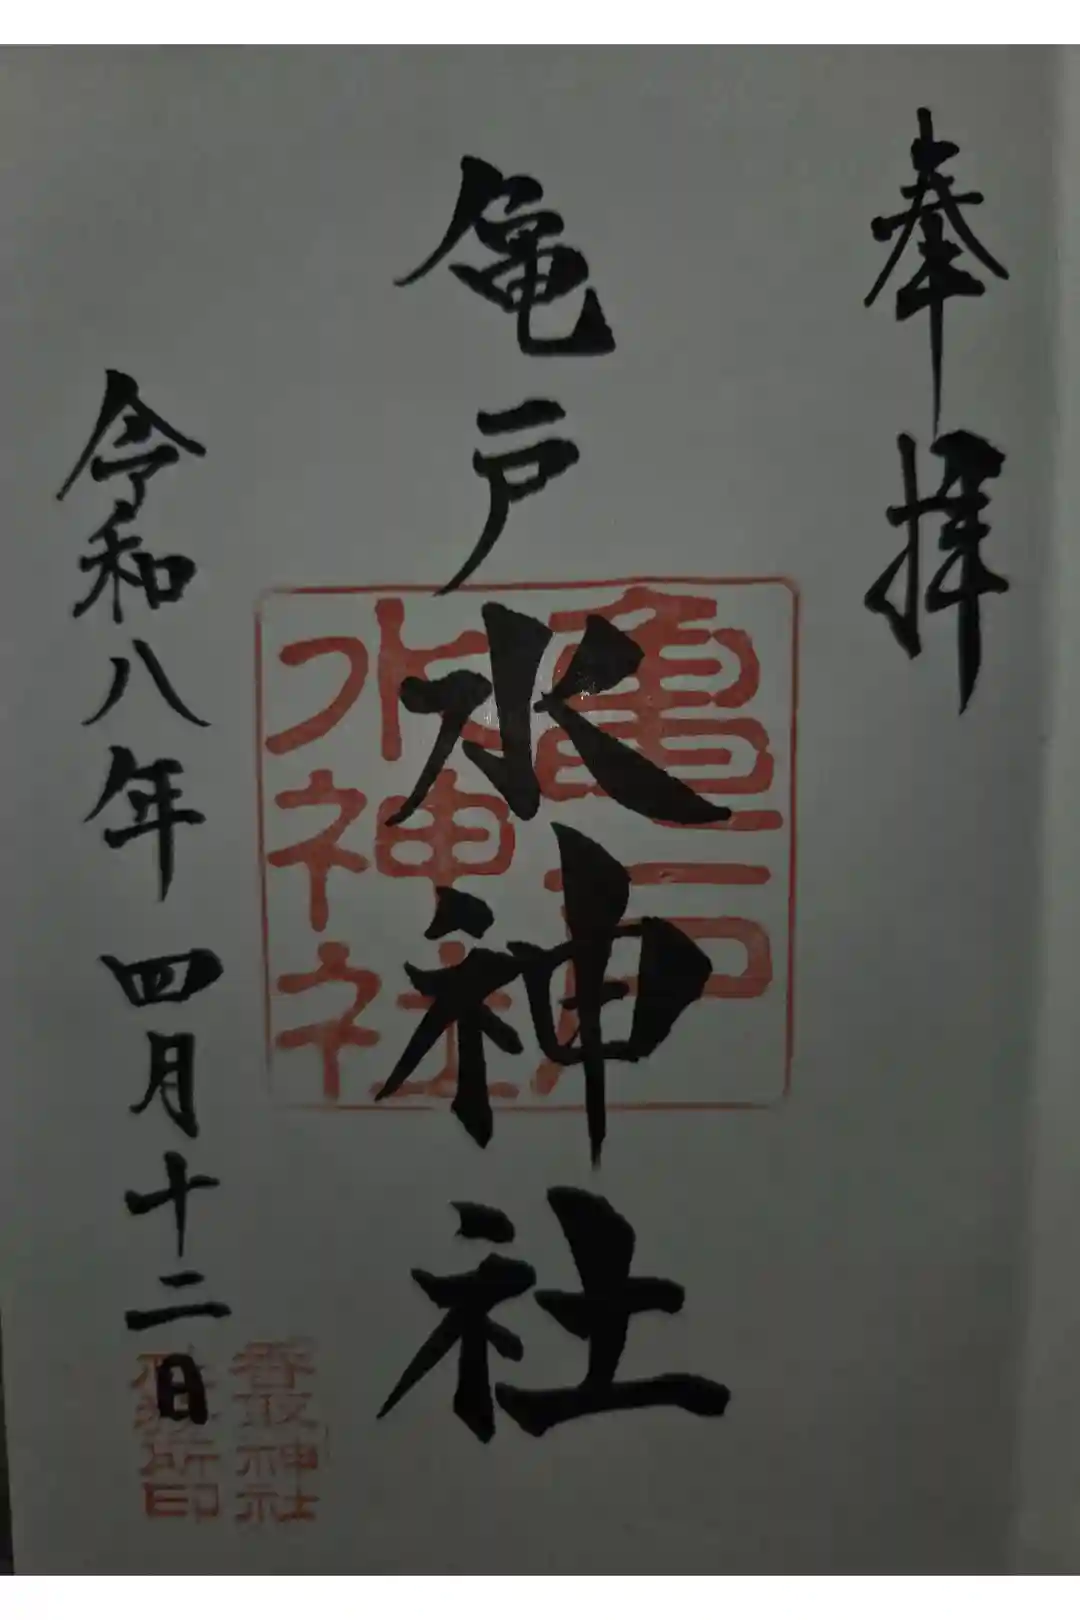 奉拝
亀戸水神社
亀戸
水神社
令和八年四月十二日
香取神社
社務所印